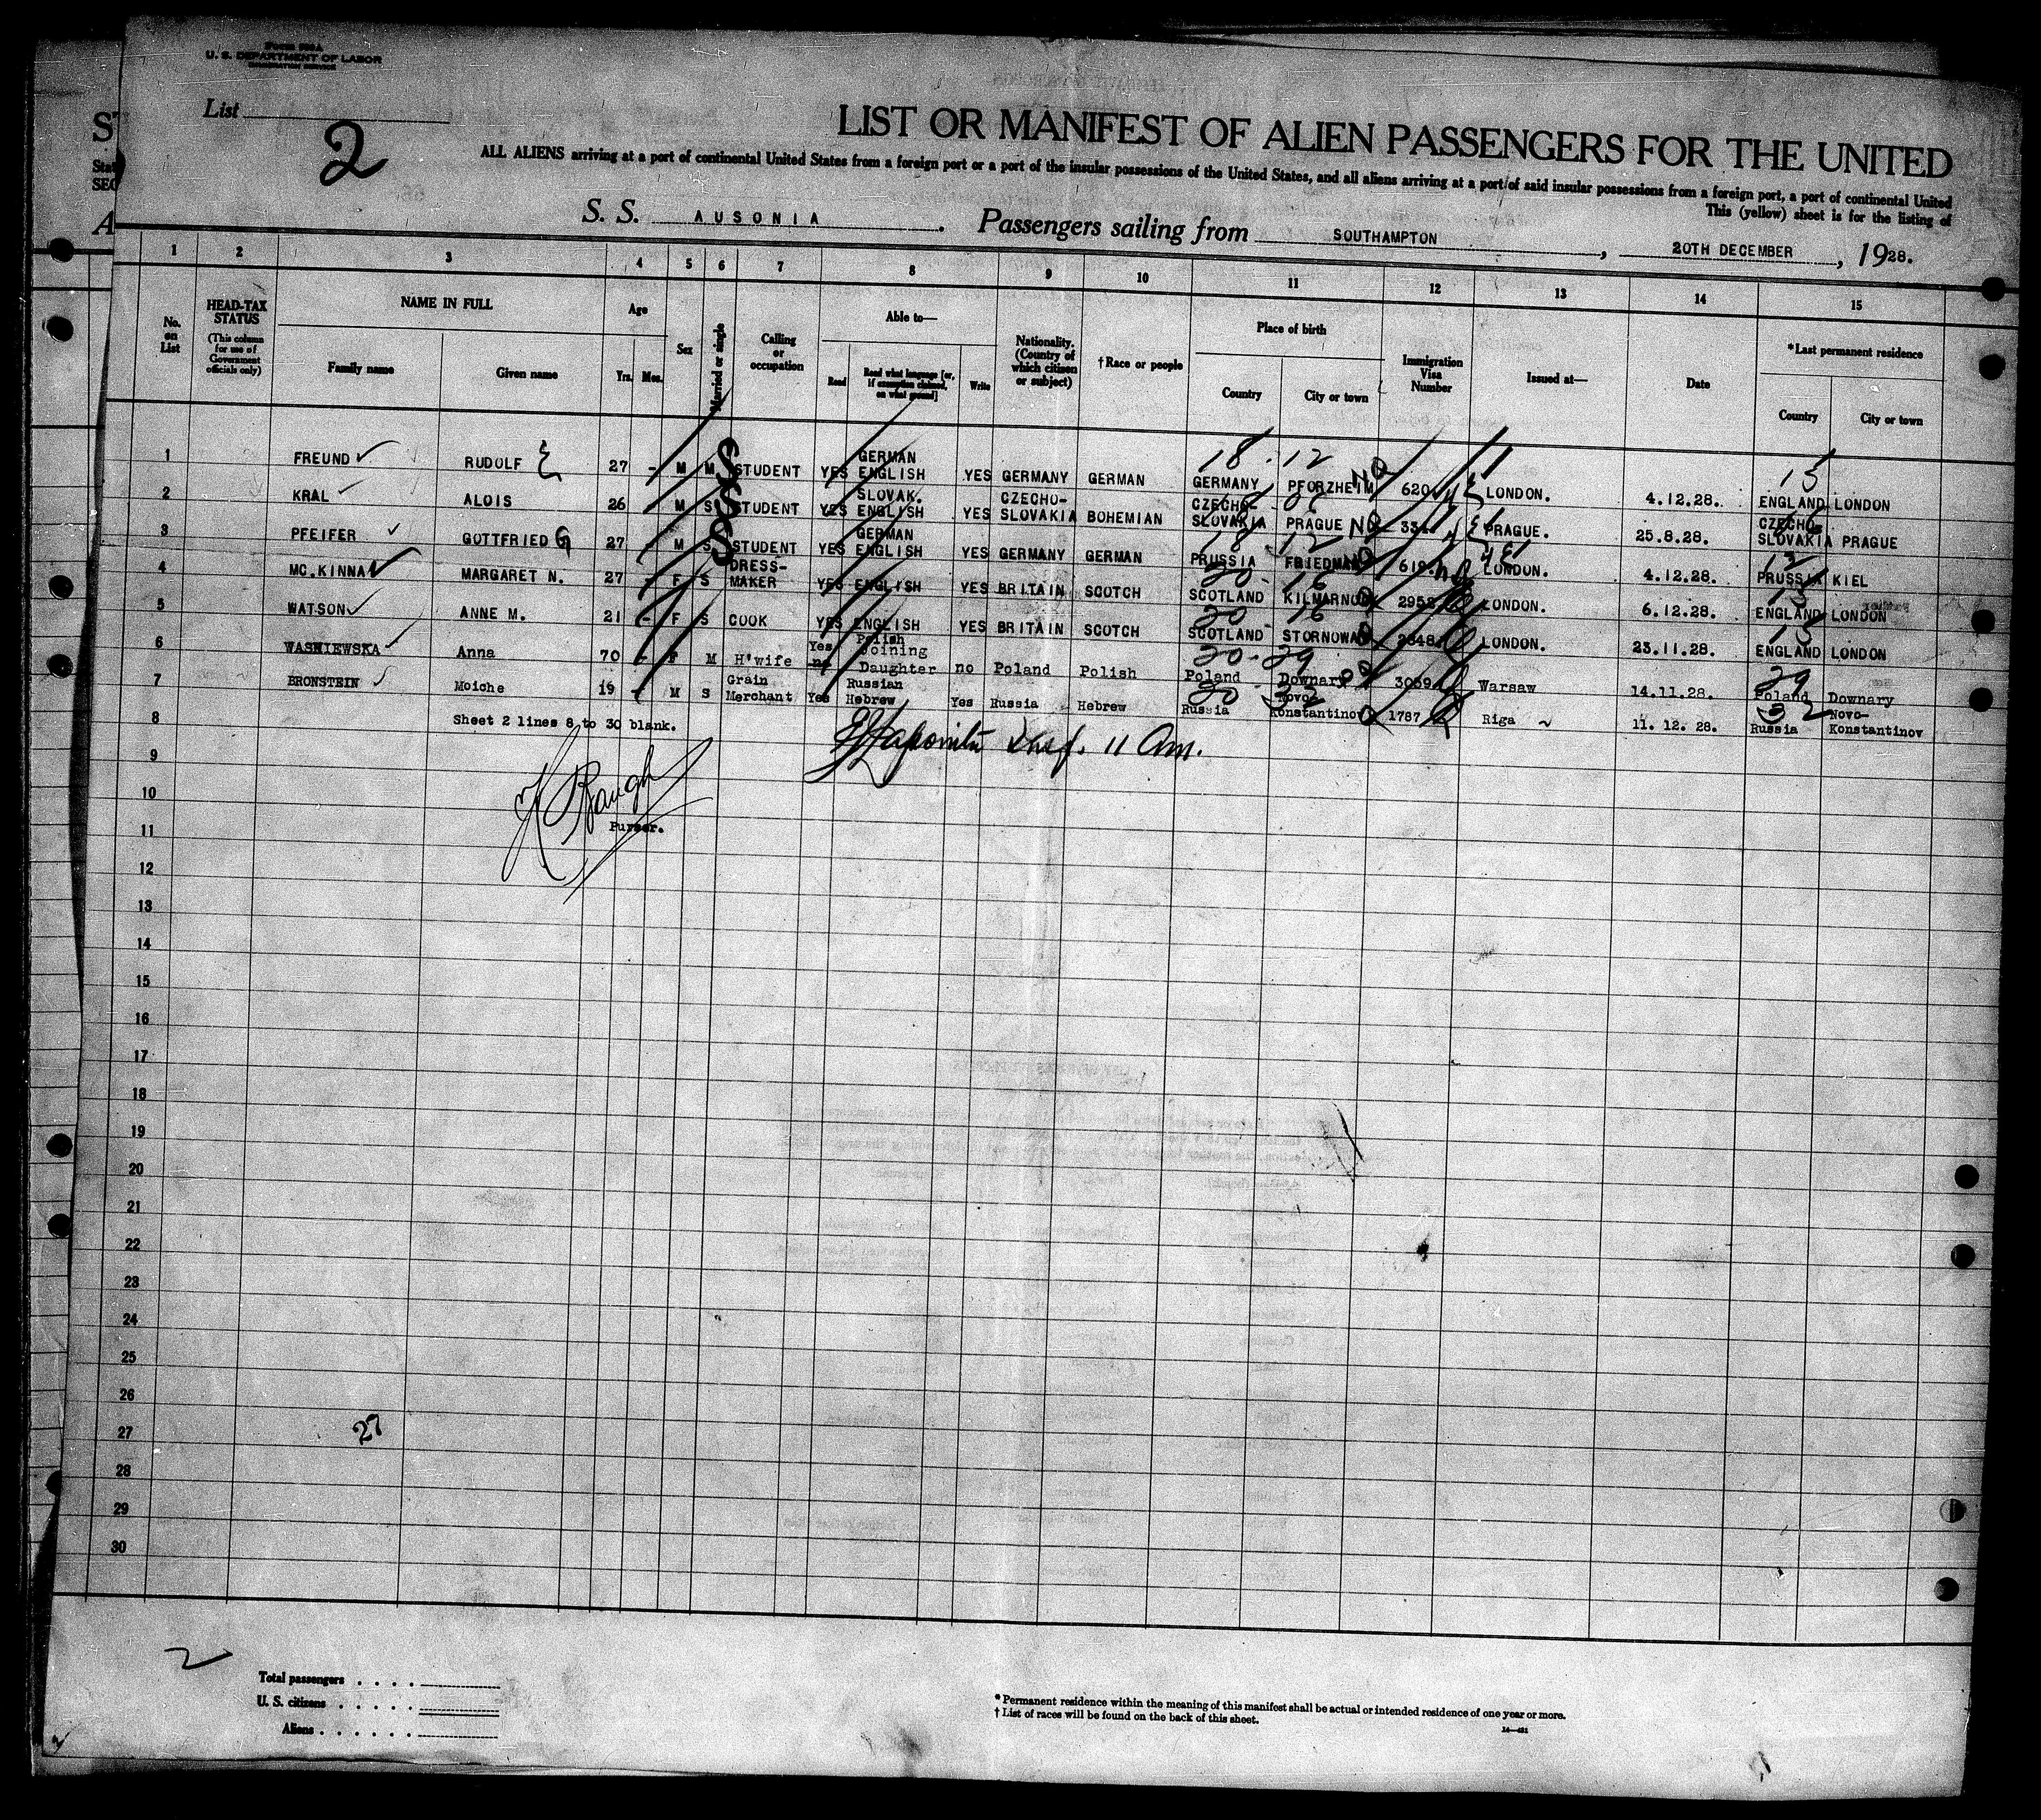 Form 500A
U. S. DEPARTMENT OF LABOR
IMMIGRATION SERVICE
List
2
LIST OR MANIFEST OF ALIEN PASSENGERS FOR THE UNITED
ALL ALIENS arriving at a port of continental United States from a foreign port or a port of the insular possessions of the United States, and all aliens arriving at a port of said insular possessions from a foreign port, a port of continental United
This (yellow) sheet is for the listing of
S. S. AUSONIA. Passengers sailing from SOUTHAMPTON, 20TH DECEMBER, 1928.
1 2 3 4 5 6 7 8 9 10 11 12 13 14 15
No. on List
HEAD-TAX STATUS (This column for use of Government officials only)
NAME IN FULL
Family name Given name
Age
Yrs. Mos.
Sex
Married or single
Calling or occupation
Able to—
Read Read what language [or, if exemption claimed, on what ground] Write
Nationality. (Country of which citizen or subject)
† Race or people
Place of birth
Country City or town
Immigration Visa Number
Issued at—
Date
*Last permanent residence
Country City or town
1 FREUND RUDOLF 27 - M M STUDENT YES GERMAN ENGLISH YES GERMANY GERMAN GERMANY PFORZHEIM 620 LONDON. 4.12.28. ENGLAND LONDON
2 KRAL ALOIS 26 M S STUDENT YES SLOVAK. ENGLISH YES CZECHO-SLOVAKIA BOHEMIAN CZECHO-SLOVAKIA PRAGUE PRAGUE. 25.8.28. CZECHO-SLOVAKIA PRAGUE
3 PFEIFER GOTTFRIED G 27 M S STUDENT YES GERMAN ENGLISH YES GERMANY GERMAN PRUSSIA 619 LONDON. 4.12.28. PRUSSIA KIEL
4 MC.KINNA MARGARET N. 27 - F S DRESS-MAKER YES ENGLISH YES BRITAIN SCOTCH SCOTLAND KILMARNOCK 2952 LONDON. 6.12.28. ENGLAND LONDON
5 WATSON ANNE M. 21 - F S COOK YES ENGLISH YES BRITAIN SCOTCH SCOTLAND STORNOWAY 2848 LONDON. 23.11.28. ENGLAND LONDON
6 WASNIEWSKA Anna 70 - F M H'wife Yes no Polish Joining Daughter no Poland Polish Poland Downary 3059 Warsaw 14.11.28. Poland Downary
7 BRONSTEIN Moiche 19 - M S Grain Merchant Yes Russian Hebrew Yes Russia Hebrew Russia Novo-Konstantinov 1787 Riga 11. 12. 28. Russia Novo-Konstantinov
8 Sheet 2 lines 8 to 30 blank.
11 Am.
9
10
Purser.
11
12
13
14
15
16
17
18
19
20
21
22
23
24
25
26
27 27
28
29
30
2
Total passengers
U. S. citizens
Aliens
* Permanent residence within the meaning of this manifest shall be actual or intended residence of one year or more.
† List of races will be found on the back of this sheet.
14—421